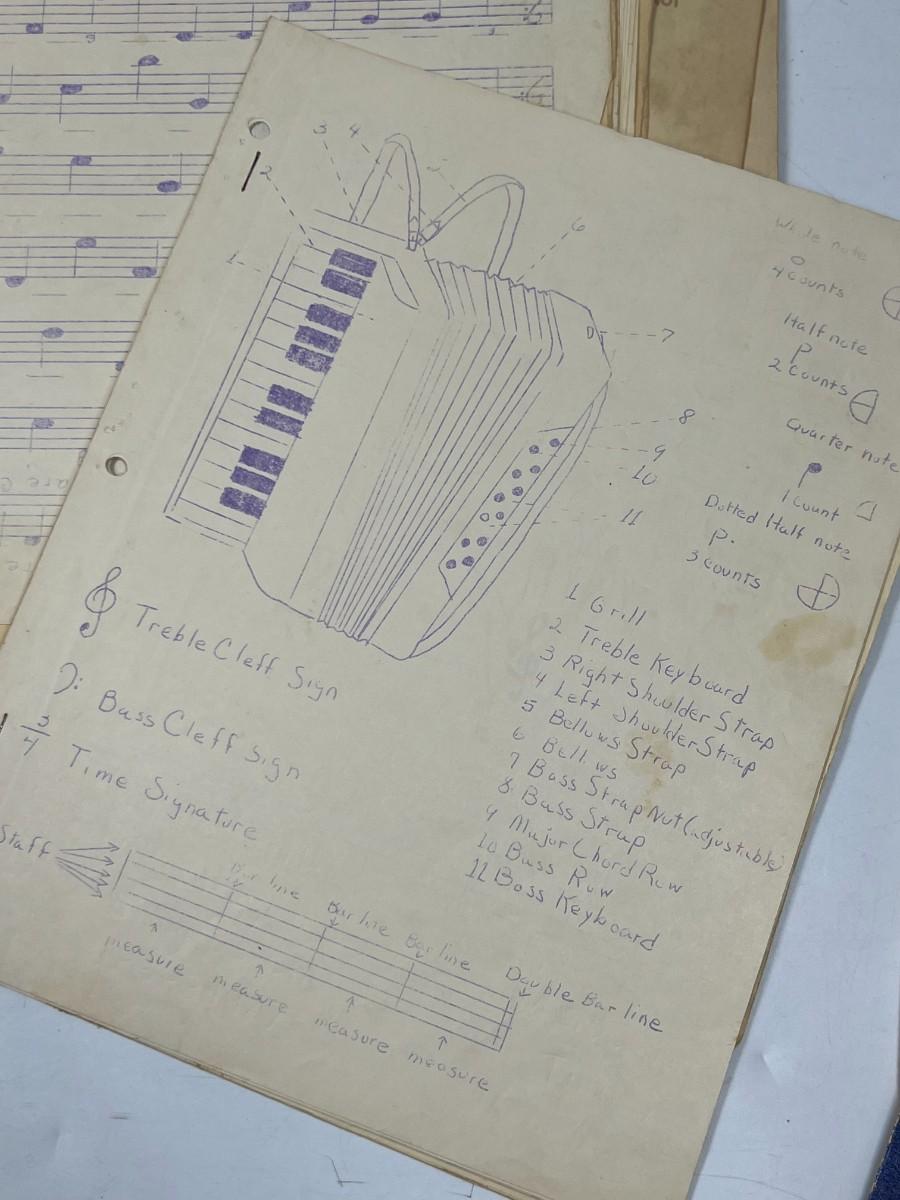 3 4 5
2
6
1
7
8
9
10
11
Whole note
4 counts
Half note
2 counts
Quarter note
1 count
Dotted Half note
3 counts
1 Grill
2 Treble Keyboard
3 Right Shoulder Strap
4 Left Shoulder Strap
5 Bellows Strap
6 Bellows
7 Bass Strap Nut (adjustable)
8 Bass Strap
9 Major Chord Row
10 Bass Row
11 Bass Keyboard
Treble Cleff Sign
Bass Cleff Sign
3
4
Time Signature
Staff
Bar line
Bar line
Bar line
Double Bar line
measure
measure
measure
measure